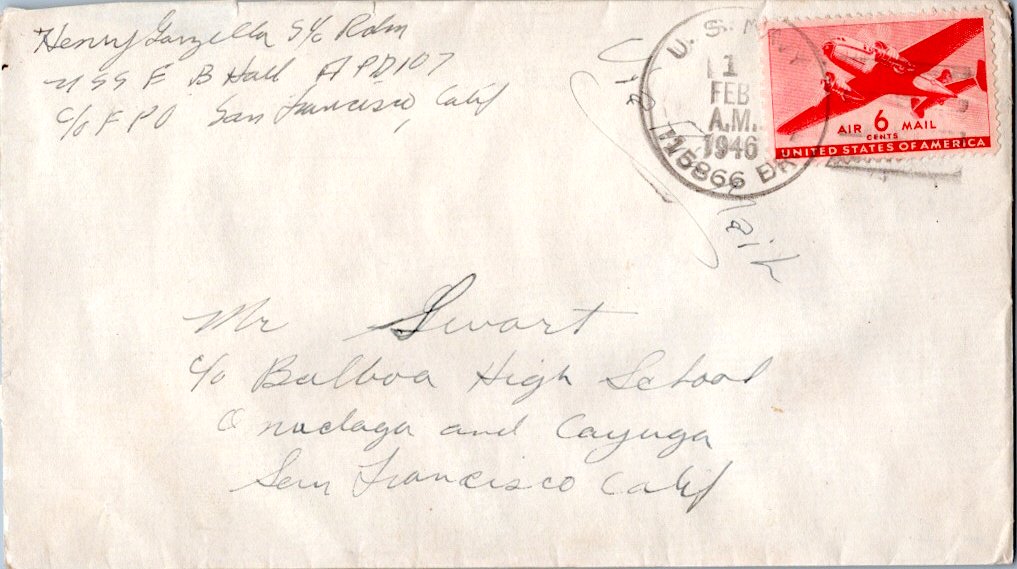 Henry Garzella S 1/c Rdm
USS F B Hall APD107
C/o F P O San Francisco, Calif
U. S. NAVY
1
FEB
A.M.
1946
15866 BR.
AIR 6 MAIL
CENTS
UNITED STATES OF AMERICA
Air Mail
Mr Swart
c/o Balboa High School
Onodaga and Cayuga
San Francisco Calif